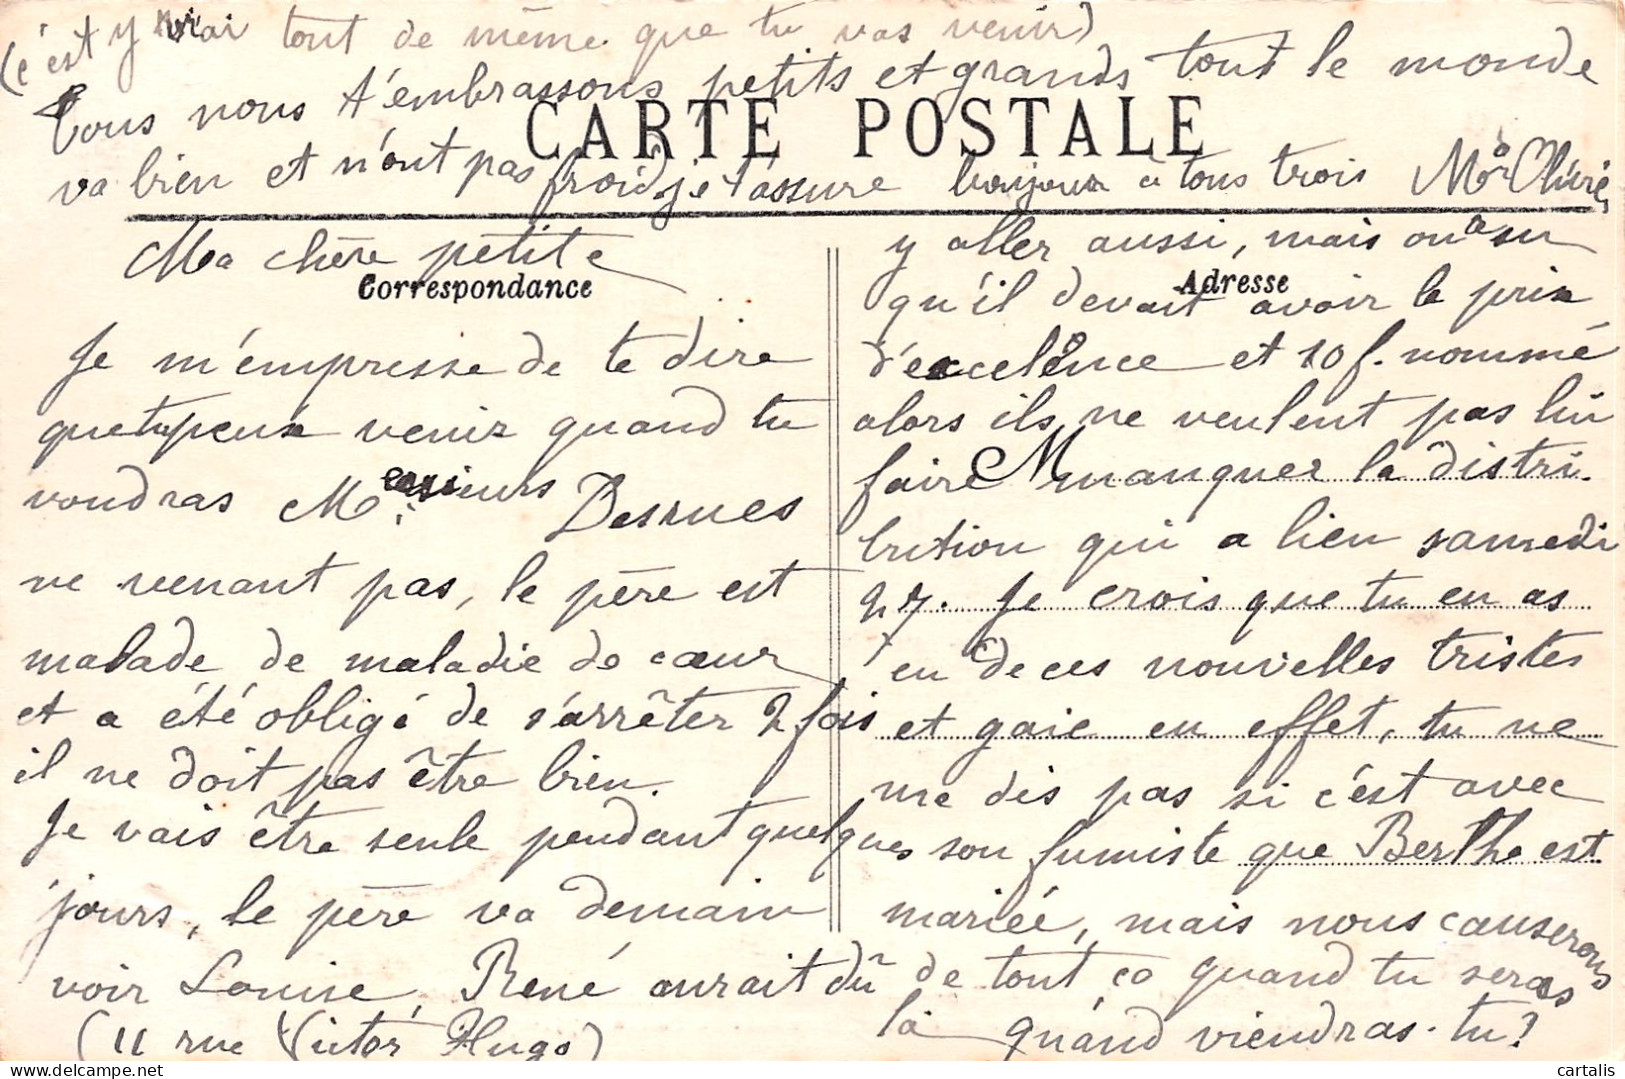 (c'est y vrai tout de même que tu vas venir)
Tous nous t'embrassons petits et grands tout le monde
CARTE POSTALE
va bien et n'ont pas froid je t'assure bonjour à tous trois
Ma chère petite
Correspondance
Je m'empresse de te dire
que tu peux venir quand tu
voudras Messieurs Desrues
ne venant pas, le père est
malade de maladie de cœur
et a été obligé de s'arrêter 2 fois
il ne doit pas être bien.
Je vais être seule pendant quelques
jours, le père va demain
voir Louise, René aurait dû
(11 rue Victor Hugo)
y aller aussi, mais on a su
Adresse
qu'il devait avoir le prix
d'excelence et 10 f. nommé
alors ils ne veulent pas lui
faire manquer la distri-
bution qui a lieu samedi
27. Je crois que tu en as
eu de ces nouvelles tristes
et gaie en effet, tu ne
me dis pas si c'est avec
son fumiste que Berthe est
mariée, mais nous causerons
de tout ça quand tu seras
là quand viendras-tu?
cartalis